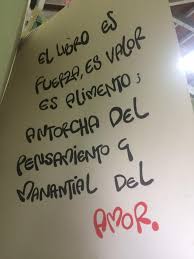 EL LIBRO ES
FUERZA, ES VALOR
ES ALIMENTO;
ANTORCHA DEL
PENSAMIENTO Y
MANANTIAL DEL
AMOR.